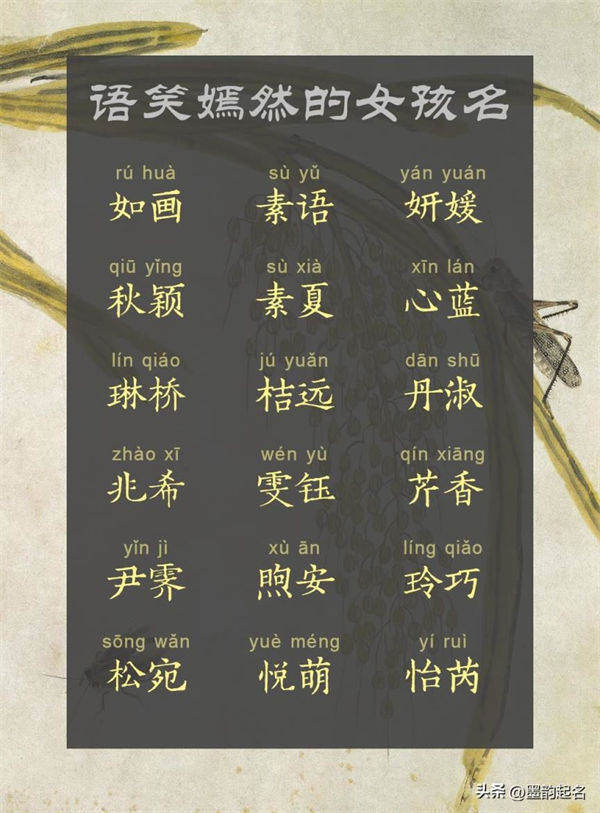 语笑嫣然的女孩名
rú huà sù yǔ yán yuán
如画 素语 妍媛
qiū yǐng sù xià xīn lán
秋颖 素夏 心蓝
lín qiáo jú yuǎn dān shū
琳桥 桔远 丹淑
zhào xī wén yù qín xiāng
兆希 雯钰 芹香
yǐn jì xù ān líng qiǎo
尹霁 煦安 玲巧
sōng wǎn yuè méng yí ruì
松宛 悦萌 怡芮
头条 @墨韵起名